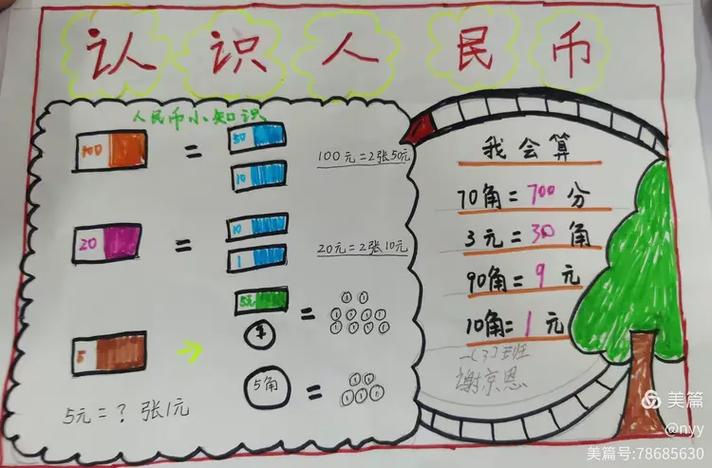 认识人民币
人民币小知识
100 = 50
10
100元=2张50元
20 = 10
1
20元=2张10元
5元 =
1 1
1 1 1 1
1 1 1 1
5
5角 =
1 1
1 1 1
5元=?张1元
我会算
70角=700分
3元=30角
90角=9元
10角=1元
一(3)班
谢京恩
美篇
@nyy
美篇号:78685630